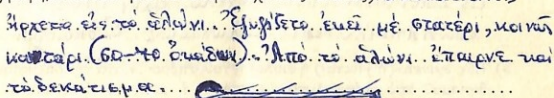 ἤρχετο εἰς τό ἁλώνι. Ἐζυγίζετο ἐκεῖ μέ στατέρι, κοινῶς
καντάρι (60-70 ὀκάδων). Ἀπό τό ἁλώνι ἔπαιρνε καί
τό δεκάτισμα.